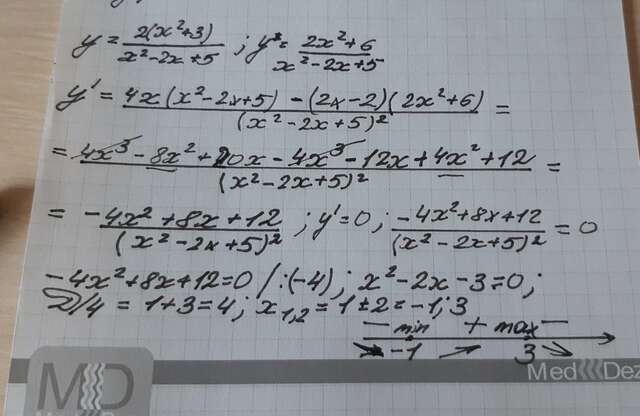 y = 2(x²+3)/(x²-2x+5) ; y = (2x²+6)/(x²-2x+5)
y' = (4x(x²-2x+5) - (2x-2)(2x²+6))/(x²-2x+5)² =
= (4x³-8x²+20x-4x³-12x+4x²+12)/(x²-2x+5)² =
= (-4x²+8x+12)/(x²-2x+5)² ; y'=0 ; (-4x²+8x+12)/(x²-2x+5)² = 0
-4x²+8x+12=0 /:(-4) ; x²-2x-3=0 ;
D/4 = 1+3=4 ; x₁,₂ = 1±2 = -1; 3
- min + max -
-1 3
MD MedDez